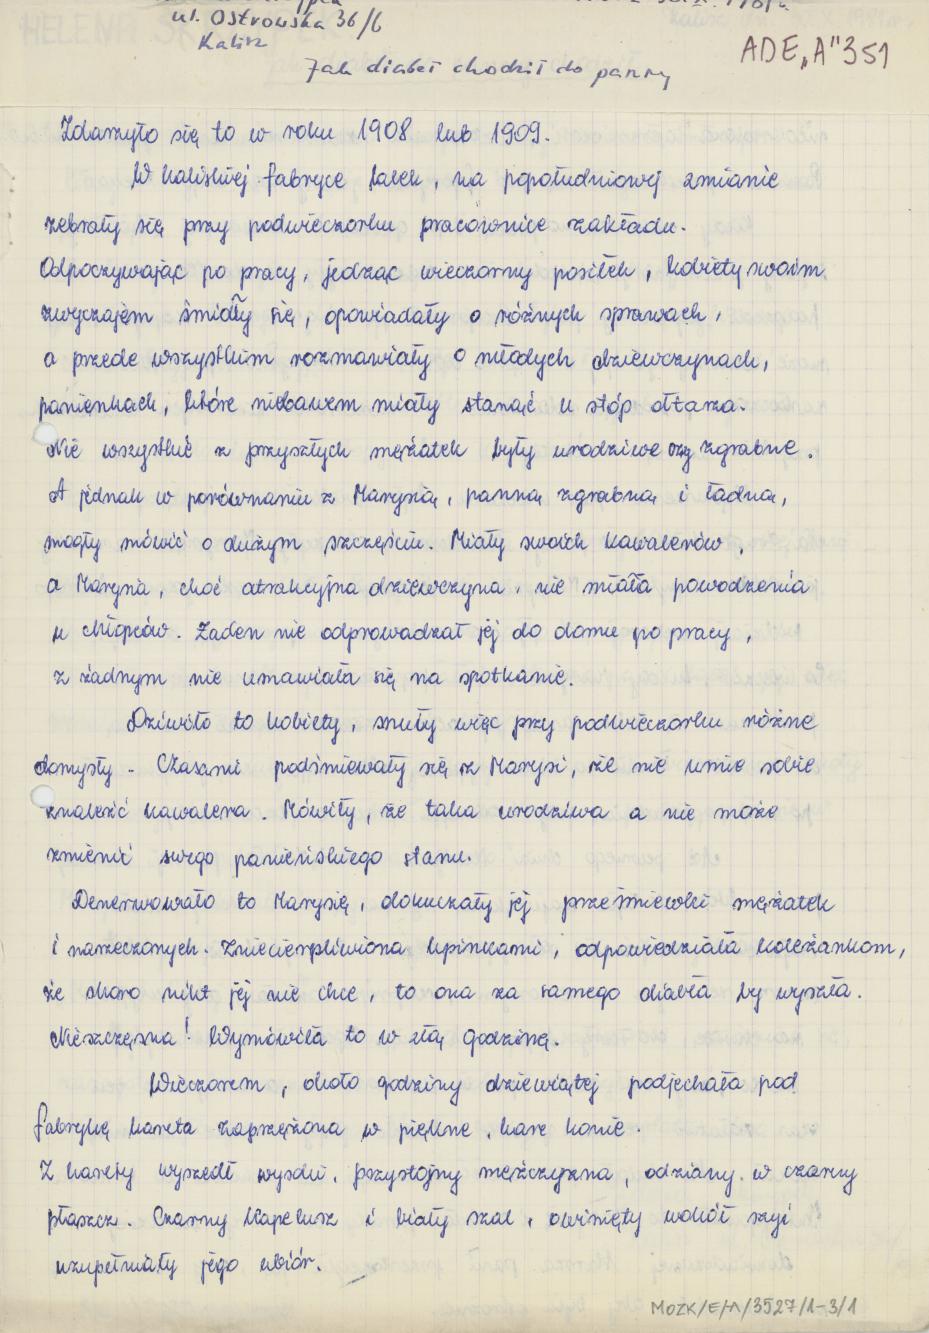 ul. Ostrowska 36/6
Kalisz
ADE „A" 351
Jak diabeł chodził do panny
Zdarzyło się to w roku 1908 lub 1909.
W kaliskiej fabryce lalek, na popołudniowej zmianie
zebrały się przy podwieczorku pracownice zakładu.
Odpoczywając po pracy, jedząc wieczorny posiłek, kobiety swoim
zwyczajem śmiały się, opowiadały o różnych sprawach,
a przede wszystkim rozmawiały o młodych dziewczynach,
panienkach, które niebawem miały stanąć u stóp ołtarza.
Nie wszystkie z przyszłych mężatek były urodziwe czy zgrabne.
A jednak w porównaniu z Marysią, panną zgrabną i ładną,
mogły mówić o dużym szczęściu. Miały swoich kawalerów,
a Marysia, choć atrakcyjna dziewczyna, nie miała powodzenia
u chłopców. Żaden nie odprowadzał jej do domu po pracy,
z żadnym nie umawiała się na spotkanie.
Dziwiło to kobiety, snuły więc przy podwieczorku różne
domysły. Czasami podśmiewały się z Marysi, że nie umie sobie
znaleźć kawalera. Mówiły, że taka urodziwa a nie może
zmienić swego panieńskiego stanu.
Denerwowało to Marysię, dokuczały jej prześmiewki mężatek
i narzeczonych. Zniecierpliwiona kpinkami, odpowiedziała koleżankom,
że skoro nikt jej nie chce, to ona za samego diabła by wyszła.
Nieszczęsna! Wymówiła to w złą godzinę.
Wieczorem, około godziny dziewiątej podjechała pod
fabrykę kareta zaprzężona w piękne, kare konie.
Z karety wyszedł wysoki, przystojny mężczyzna, odziany w czarny
płaszcz. Czarny kapelusz i biały szal, owinięty wokół szyi
uzupełniały jego ubiór.
MOZK/E/A/3527/1-3/1